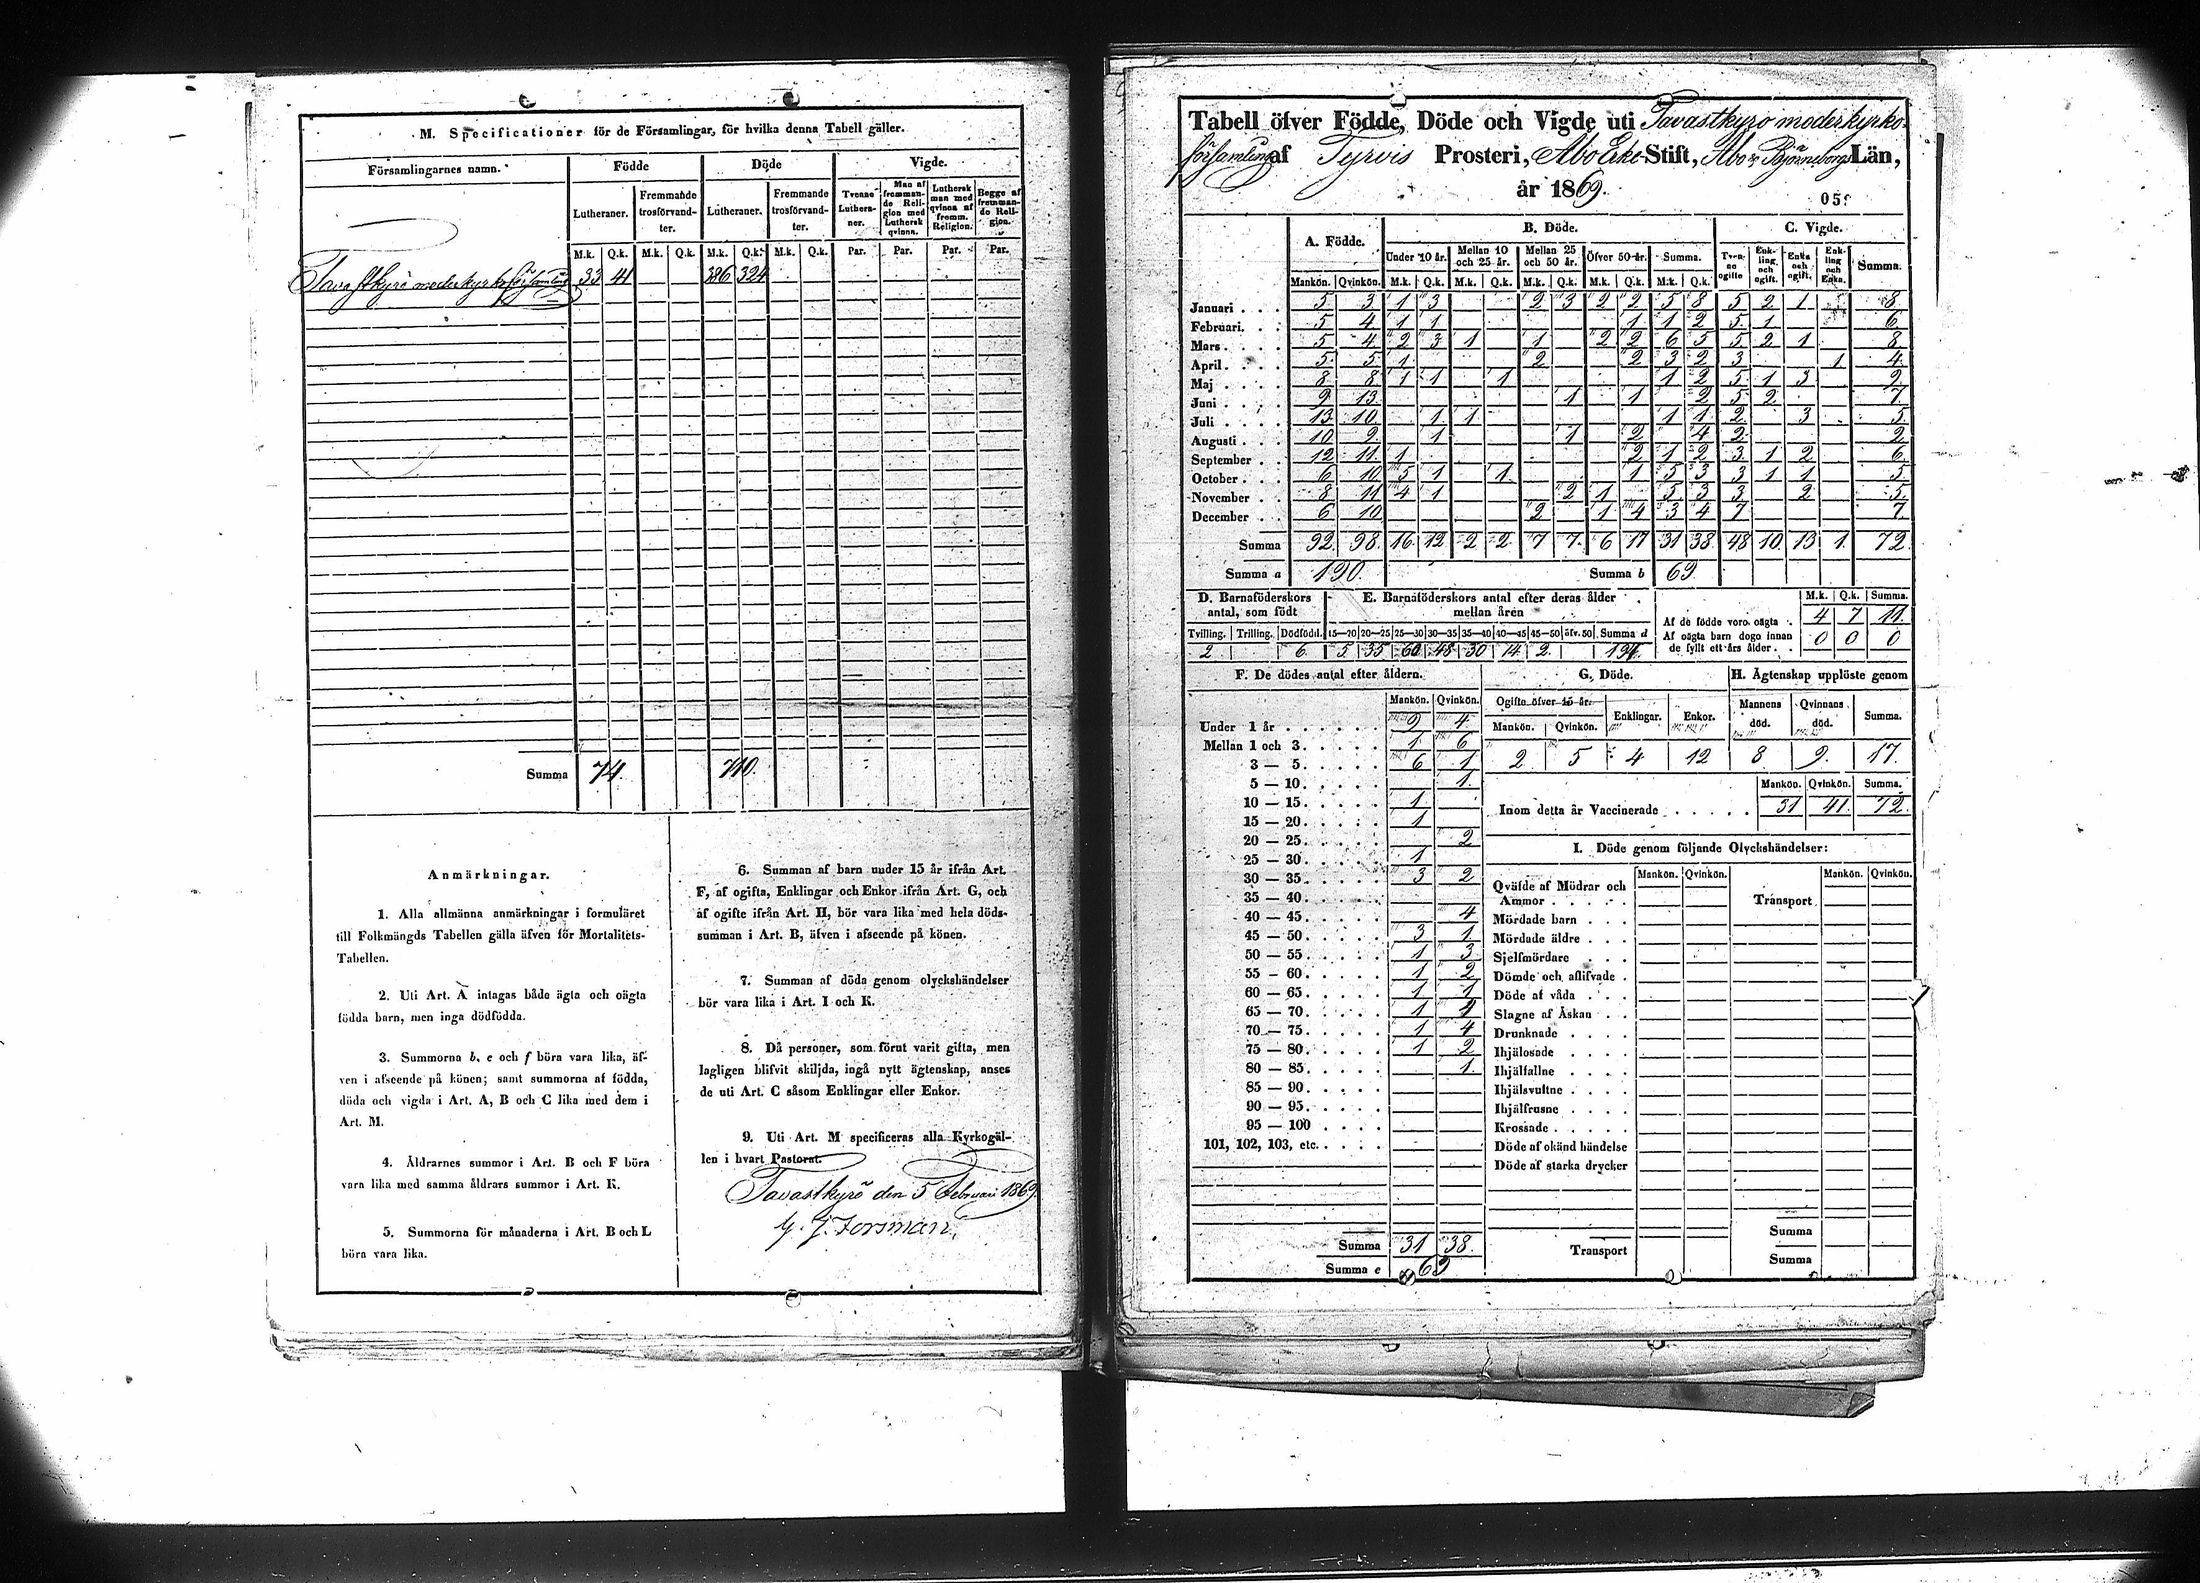 M. Specificationer för de Församlingar, för hvilka denna Tabell gäller.
Församlingarnes namn. Födde Döde Vigde.
Lutheraner. Fremmande trosförvandter. Lutheraner. Fremmande trosförvandter. Tvenne Lutheraner. Man af fremmande Religion med Luthersk qvinna. Luthersk man med qvinna af fremm. Religion. Begge af fremmande Religion.
M.k. Q.k. M.k. Q.k. M.k. Q.k. M.k. Q.k. Par. Par. Par. Par.
Tavastkyrö moderkyrkoförsamling 33 41 386 324
Summa 74. 710.
Anmärkningar.
1. Alla allmänna anmärkningar i formuläret
till Folkmängds Tabellen gälla äfven för Mortalitets-
Tabellen.
2. Uti Art. A intagas både ägta och oägta
födda barn, men inga dödfödda.
3. Summorna b, e och f böra vara lika, äf-
ven i afseende på könen; samt summorna af födda,
döda och vigda i Art. A, B och C lika med dem i
Art. M.
4. Åldrarnes summor i Art. B och F böra
vara lika med samma åldrars summor i Art. K.
5. Summorna för månaderna i Art. B och L
böra vara lika.
6. Summan af barn under 15 år ifrån Art.
F, af ogifta, Enklingar och Enkor ifrån Art. G, och
af ogifte ifrån Art. H, bör vara lika med hela döds-
summan i Art. B, äfven i afseende på könen.
7. Summan af döda genom olyckshändelser
bör vara lika i Art. I och K.
8. Då personer, som förut varit gifta, men
lagligen blifvit skiljda, ingå nytt ägtenskap, anses
de uti Art. C såsom Enklingar eller Enkor.
9. Uti Art. M specificeras alla Kyrkogäl-
len i hvart Pastorat.
Tavastkyrö den 5 Februari 1869.
G. J. Forsman.
Tabell öfver Födde, Döde och Vigde uti Tavastkyro moderkyrko-
församling af Tyrvis Prosteri, Åbo Erke-Stift, Åbo o. Björneborgs Län,
år 1869.
A. Födde. B. Döde. C. Vigde.
Under 10 år. Mellan 10 och 25 år. Mellan 25 och 50 år. Öfver 50 år. Summa. Tvenne ogifte Enkling och ogift. Enka och ogift. Enkling och Enka. Summa.
Mankön. Qvinkön. M.k. Q.k. M.k. Q.k. M.k. Q.k. M.k. Q.k. M.k. Q.k.
Januari 5 3 1 3 2 3 2 2 5 8 5 2 1 8
Februari 5 4 1 1 1 1 2 5 1 6
Mars 5 4 2 3 1 1 2 2 6 5 5 2 1 8
April 5 5 1 2 2 3 2 3 1 4
Maj 8 8 1 1 1 1 2 5 1 3 9
Juni 9 13 1 1 2 5 2 7
Juli 13 10 1 1 1 1 2 3 5
Augusti 10 9 1 1 2 4 2 2
September 12 11 1 2 1 2 3 1 2 6
October 6 10 5 1 1 1 5 3 3 1 1 5
November 8 11 4 1 2 1 5 3 3 2 5
December 6 10 2 1 4 3 4 7 7
Summa 92 98 16 12 2 2 7 7 6 17 31 38 48 10 13 1 72
Summa a 190. Summa b 69.
D. Barnaföderskors antal, som födt
Tvilling. Trilling. Dödfödd.
2 6
E. Barnaföderskors antal efter deras ålder mellan åren
15—20 20—25 25—30 30—35 35—40 40—45 45—50 öfv. 50 Summa d
5 35 60 48 30 14 2 194
M.k. Q.k. Summa.
Af de födde voro oägta 4 7 11
Af oägta barn dogo innan de fyllt ett års ålder 0 0 0
F. De dödes antal efter åldern.
Mankön. Qvinkön.
Under 1 år 9 4
Mellan 1 och 3 1 6
3 — 5 6 1
5 — 10 1
10 — 15 1
15 — 20 1
20 — 25 2
25 — 30 1
30 — 35 3 2
35 — 40
40 — 45 4
45 — 50 3 1
50 — 55 1 3
55 — 60 1 2
60 — 65 1 1
65 — 70 1
70 — 75 1 4
75 — 80 1 2
80 — 85 1
85 — 90
90 — 95
95 — 100
101, 102, 103, etc.
Summa 31 38
Summa e 69
G. Döde.
Ogifte öfver 15 år. Enklingar. Enkor.
Mankön. Qvinkön.
2 5 4 12
H. Ägtenskap upplöste genom
Mannens död. Qvinnans död. Summa.
8 9 17.
Mankön. Qvinkön. Summa.
Inom detta år Vaccinerade 31 41 72
I. Döde genom följande Olyckshändelser:
Mankön. Qvinkön. Mankön. Qvinkön.
Qväfde af Mödrar och Ammor Transport
Mördade barn
Mördade äldre
Sjelfmördare
Dömde och aflifvade
Döde af våda
Slagne af Åskan
Drunknade
Ihjälosade
Ihjälfallne
Ihjälsvultne
Ihjälfrusne
Krossade
Döde af okänd händelse
Döde af starka drycker
Transport Summa
Summa